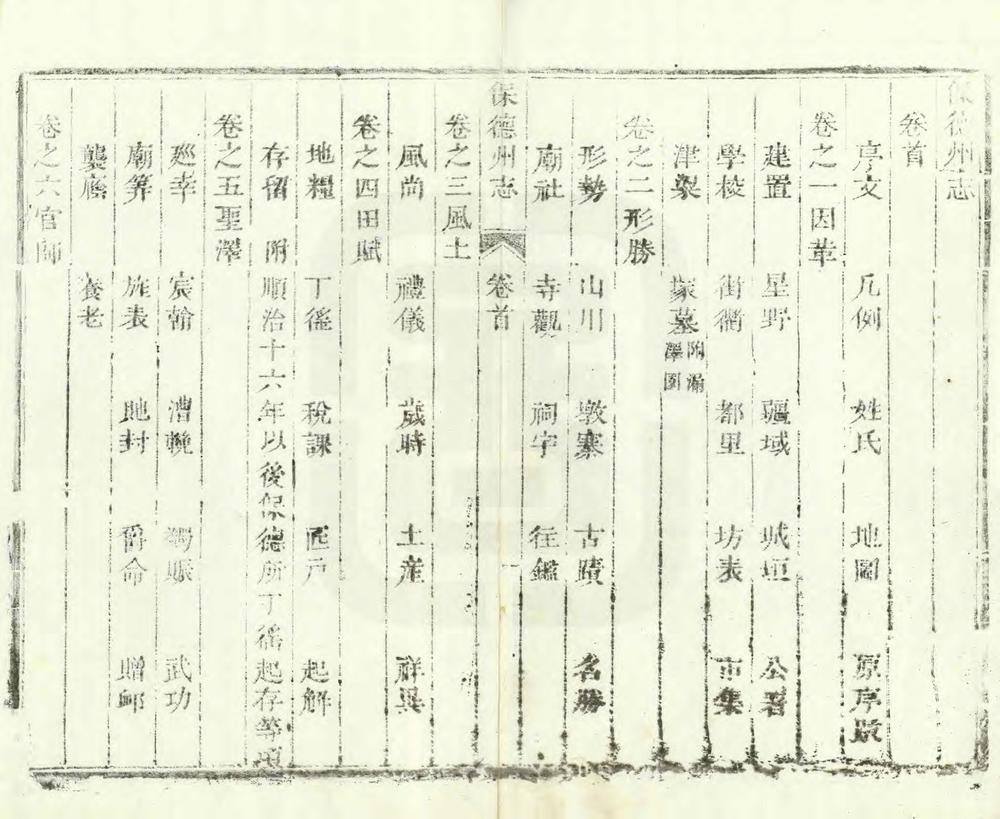 保德州志
卷首
序文 凡例 姓氏 地圖 原序跋
卷之一因革
建置 星野 疆域 城垣 公署
學校 街衢 都里 坊表 市集
津梁 塚墓 附漏澤園
卷之二形勝
形勢 山川 墩寨 古蹟 名勝
廟社 寺觀 祠宇 往鑑
保德州志 卷首 一
卷之三風土
風尚 禮儀 歲時 土產 祥異
卷之四田賦
地糧 丁徭 稅課 匠戶 起解
存留 附順治十六年以後保德所丁徭起存等項
卷之五聖澤
廵幸 宸翰 漕輓 蠲賑 武功
廟筭 旌表 貤封 爵命 贈卹
襲廕 養老
卷之六官師